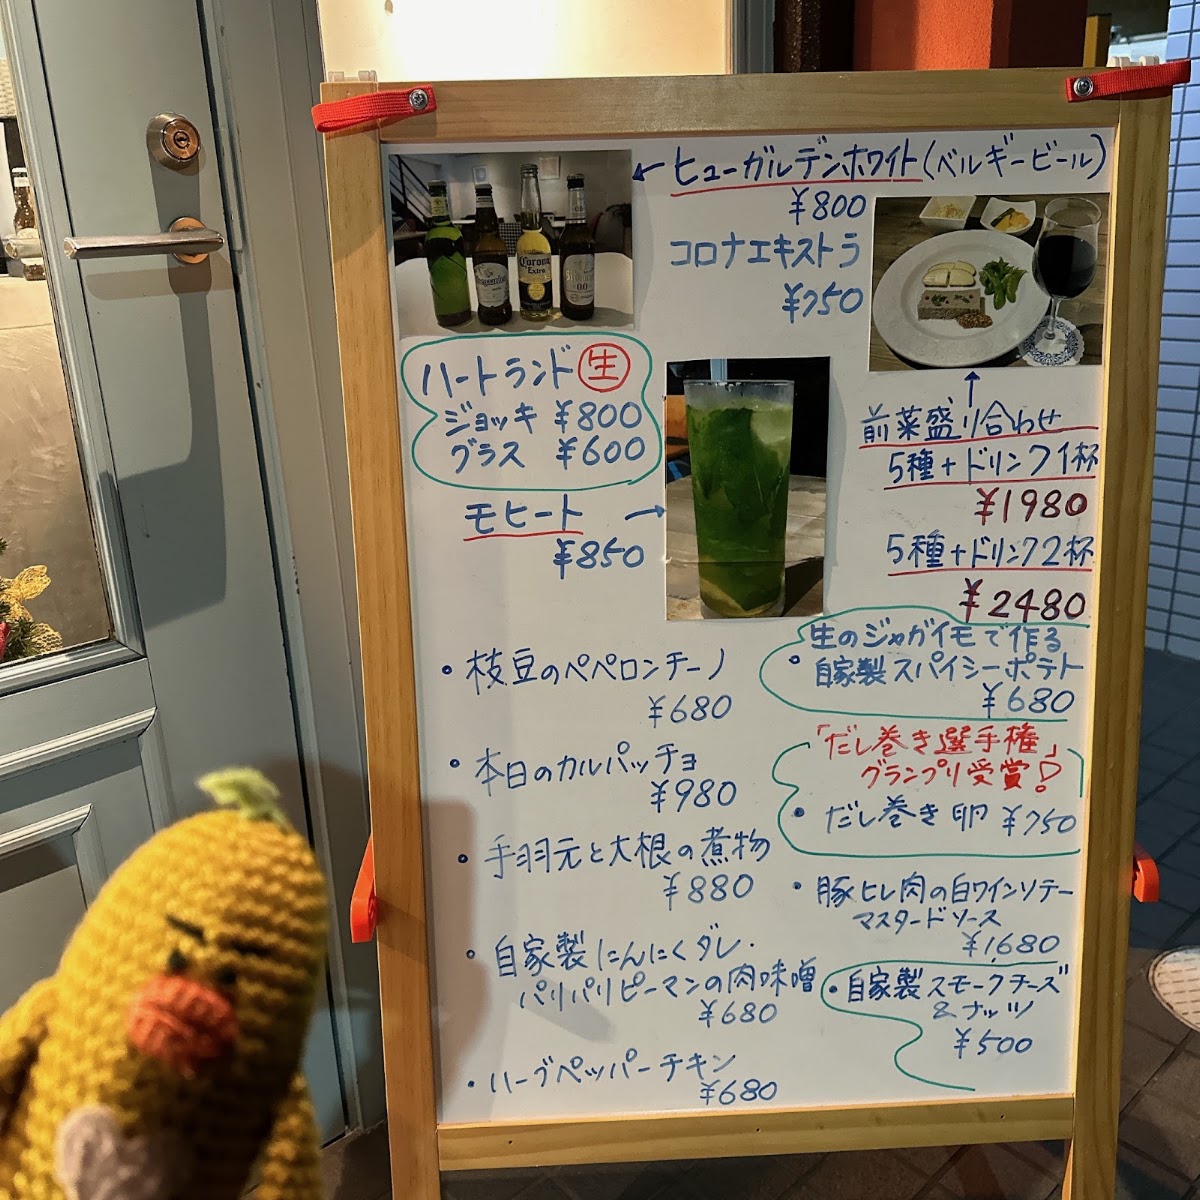 ←ヒューガルデンホワイト(ベルギービール)
¥800
コロナエキストラ
¥750
Corona
Extra
0.0
ハートランド 生
ジョッキ ¥800
グラス ¥600
モヒート →
¥850
↑
前菜盛り合わせ
5種+ドリンク1杯
¥1980
5種+ドリンク2杯
¥2480
・枝豆のペペロンチーノ
¥680
・本日のカルパッチョ
¥980
・手羽元と大根の煮物
¥880
・自家製にんにくダレ・
パリパリピーマンの肉味噌
¥680
・ハーブペッパーチキン
¥680
生のジャガイモで作る
・自家製スパイシーポテト
¥680
「だし巻き選手権」
グランプリ受賞!
・だし巻き卵 ¥750
・豚ヒレ肉の白ワインソテー
マスタードソース
¥1,680
・自家製スモークチーズ
&ナッツ
¥500